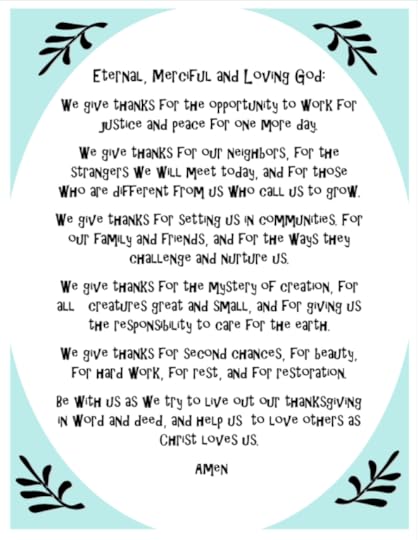 Eternal, Merciful and Loving God:
We give thanks for the opportunity to work for
justice and peace for one more day.
We give thanks for our neighbors, for the
strangers we will meet today, and for those
who are different from us who call us to grow.
We give thanks for setting us in communities. For
our family and friends, and for the ways they
challenge and nurture us.
We give thanks for the mystery of creation, for
all creatures great and small, and for giving us
the responsibility to care for the earth.
We give thanks for second chances, for beauty,
for hard work, for rest, and for restoration.
Be with us as we try to live out our thanksgiving
in word and deed, and help us to love others as
Christ loves us.
Amen